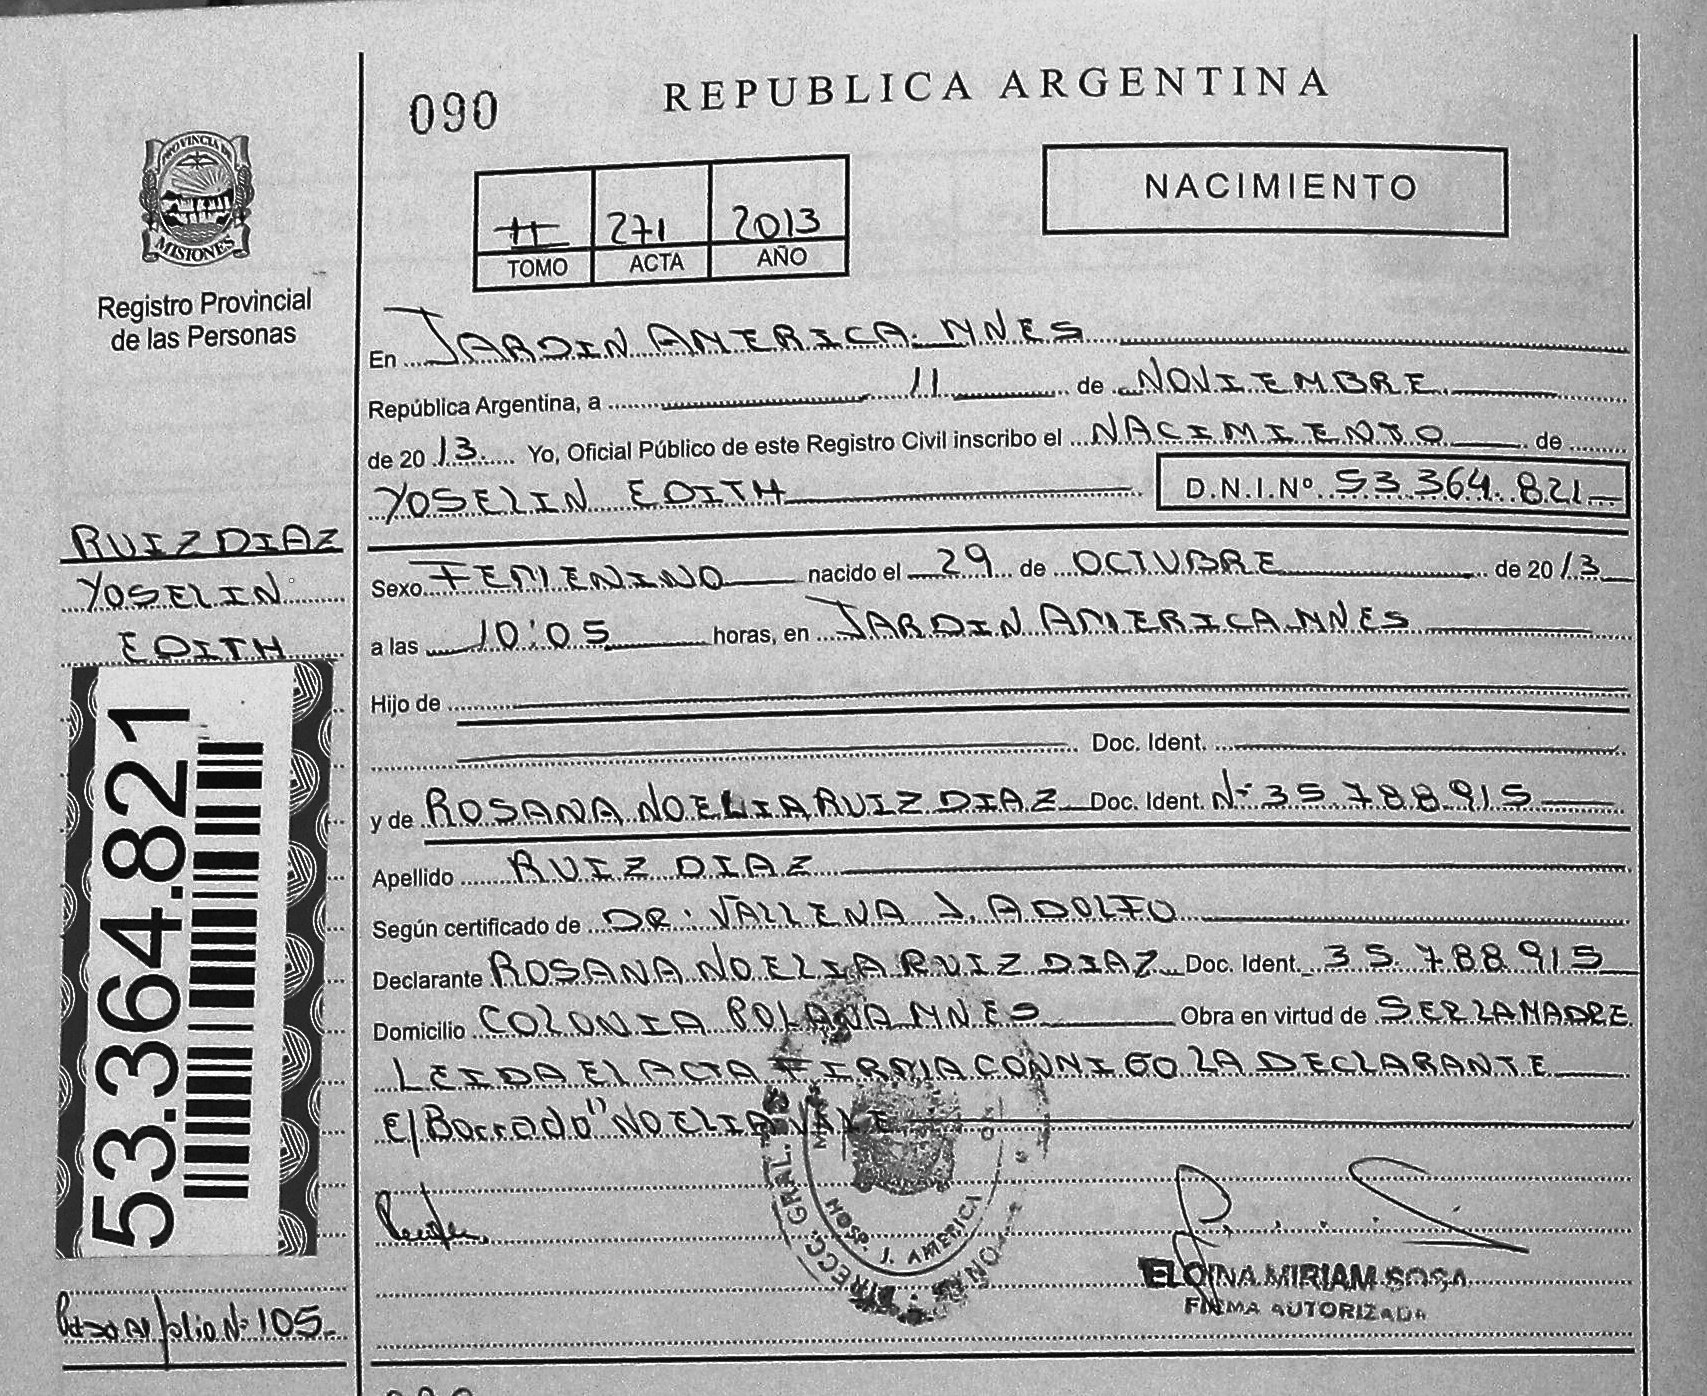 090
REPUBLICA ARGENTINA
NACIMIENTO
II 271 2013
TOMO ACTA AÑO
PROVINCIA DE
MISIONES
Registro Provincial
de las Personas
En JARDIN AMERICA. MNES
República Argentina, a 11 de NOVIEMBRE
de 2013. Yo, Oficial Público de este Registro Civil inscribo el NACIMIENTO de
YOSELIN EDITH D.N.I.Nº 53.364.821
RUIZ DIAZ
YOSELIN
EDITH
53.364.821
Sexo FEMENINO nacido el 29 de OCTUBRE de 2013
a las 10:05 horas, en JARDIN AMERICA MNES
Hijo de
Doc. Ident.
y de ROSANA NOELIA RUIZ DIAZ Doc. Ident. Nº 35.788.915
Apellido RUIZ DIAZ
Según certificado de DR: VALLENA J. ADOLFO
Declarante ROSANA NOELIA RUIZ DIAZ Doc. Ident. 35.788.915
Domicilio COLONIA POLANA MNES Obra en virtud de SER LA MADRE
LEIDA EL ACTA FIRMA CONMIGO LA DECLARANTE
E/Borrado "NOELIA" VALE
DIRECC. GRAL.
HOSP. J. AMERICA
ELOINA MIRIAM SOSA
FIRMA AUTORIZADA
folio Nº 105